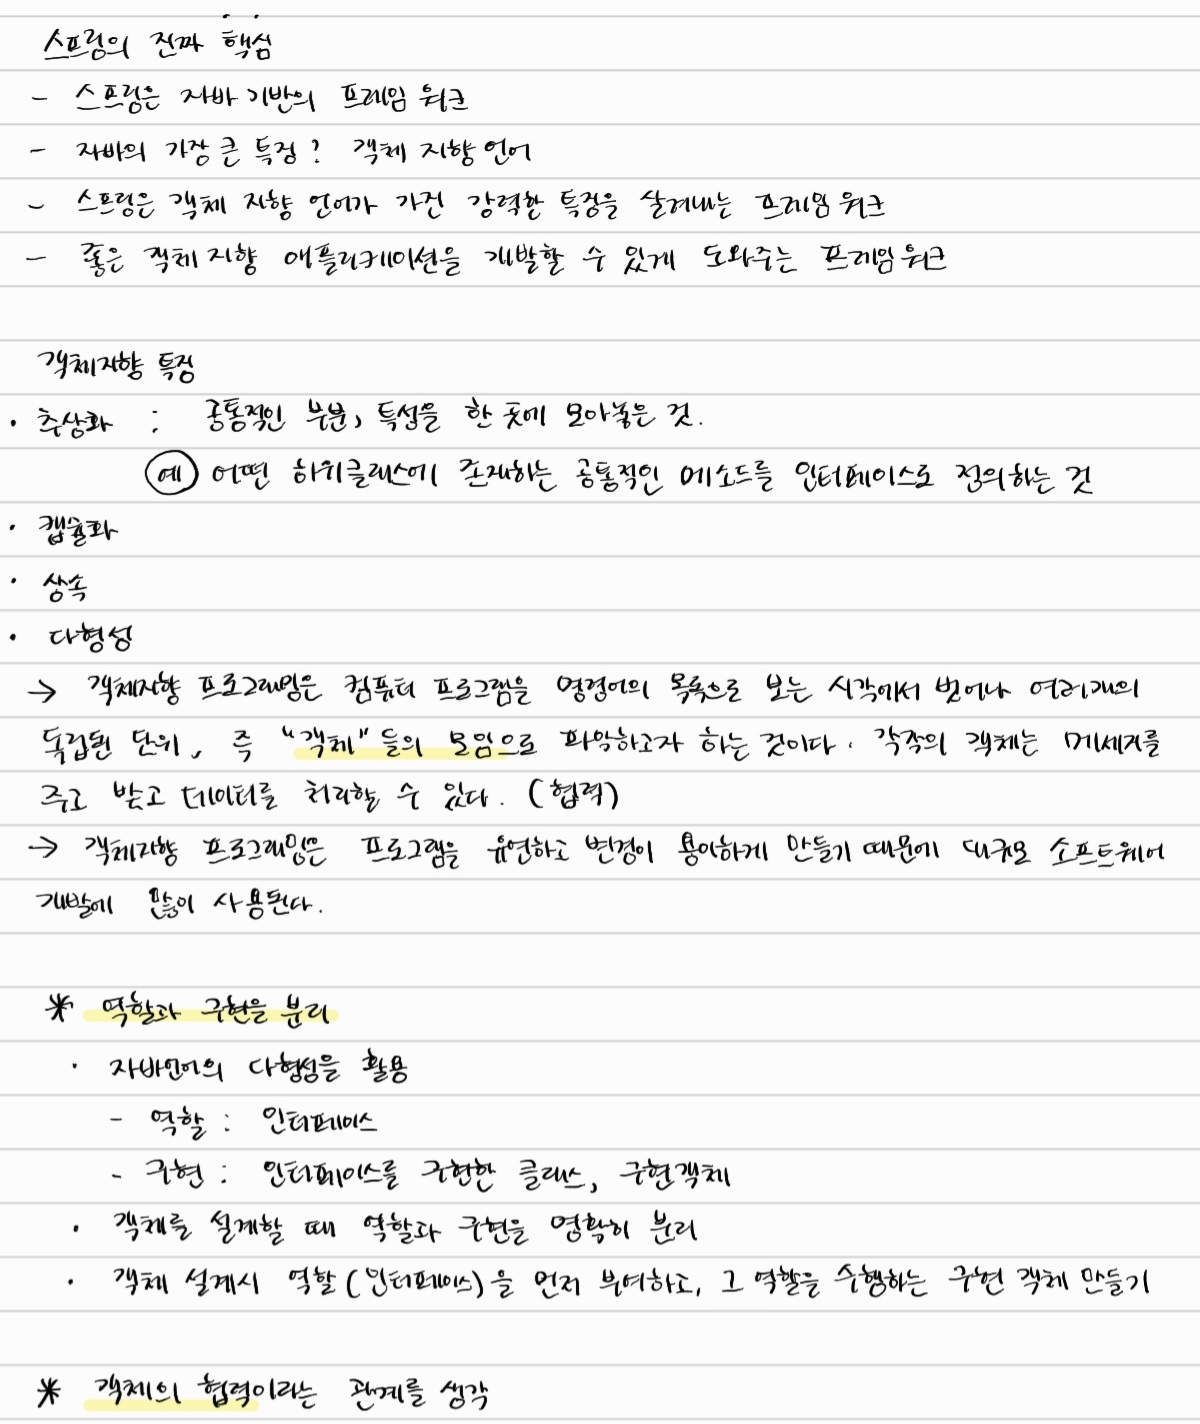 스프링의 진짜 핵심
- 스프링은 자바 기반의 프레임 워크
- 자바의 가장 큰 특징? 객체 지향 언어
- 스프링은 객체 지향 언어가 가진 강력한 특징을 살려내는 프레임 워크
- 좋은 객체 지향 애플리케이션을 개발할 수 있게 도와주는 프레임 워크
객체지향 특징
• 추상화 : 공통적인 부분, 특성을 한 곳에 모아놓은 것.
예 어떤 하위클래스에 존재하는 공통적인 메소드를 인터페이스로 정의하는 것
• 캡슐화
• 상속
• 다형성
→ 객체지향 프로그래밍은 컴퓨터 프로그램을 명령어의 목록으로 보는 시각에서 벗어나 여러개의
독립된 단위, 즉 "객체"들의 모임으로 파악하고자 하는 것이다. 각각의 객체는 메세지를
주고 받고 데이터를 처리할 수 있다. (협력)
→ 객체지향 프로그래밍은 프로그램을 유연하고 변경이 용이하게 만들기 때문에 대규모 소프트웨어
개발에 많이 사용된다.
* 역할과 구현을 분리
• 자바언어의 다형성을 활용
- 역할 : 인터페이스
- 구현 : 인터페이스를 구현한 클래스, 구현객체
• 객체를 설계할 때 역할과 구현을 명확히 분리
• 객체 설계시 역할(인터페이스)을 먼저 부여하고, 그 역할을 수행하는 구현 객체 만들기
* 객체의 협력이라는 관계를 생각